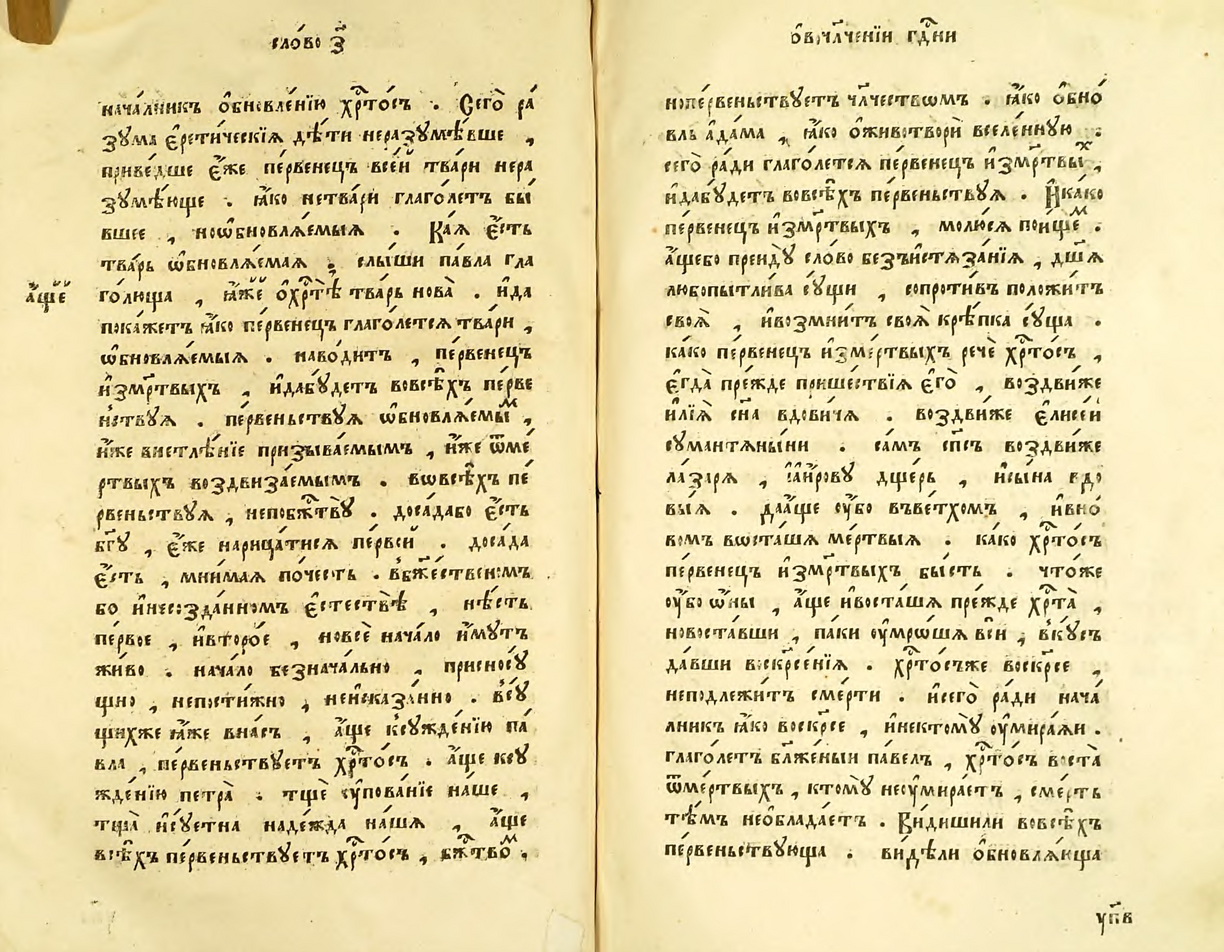 сло́во з҃
нача́лникъ ѻ҆бновле́нїю хрⷭ҇то́съ . Сего̀ ра́
зума є҆рети́ческїѧ дѣ́ти неразꙋмѣ́вше ,
приве́дше є҆́же пе́рвенецъ все́й тва́ри нера
зꙋмѣ́юще . ꙗ҆́ко нетва́ри глаго́летъ бы́
вшее , ноѡ҆бновлѧ́емыѧ . Ка́ѧ є҆́сть
тва́рь ѡ҆бновлѧ́емаѧ . слы́ши па́вла гла
го́люща , ꙗ҆́же ѻ҆хрⷭ҇тѣ̀ тва́рь нова̀ . и҆да
пока́жетъ ꙗ҆́ко пе́рвенецъ глаго́летсѧ тва́ри ,
ѡ҆бновлѧ́емыѧ . наво́дитъ , пе́рвенецъ
и҆зме́ртвыхъ , и҆дабꙋ́детъ вовсѣ́хъ пе́рве
нствꙋѧ . пе́рвеньствꙋѧ ѡ҆бновлѧ́емыⷨ ,
и҆́же вистлѣ́нїе призыва́емымъ , и҆́же ѿме́
ртвыхъ воздвиза́емымъ . вѡвсѣ́хъ пе́
рвеньствꙋѧ , непобжⷭ҇твꙋ̀ . доса́дабо є҆́сть
бг҃ꙋ , є҆́же нарица́тисѧ пе́рвей . доса́да
є҆́сть , мни́маѧ по́честь . вбж҃е́ственомъ
бо и҆несозда́нномъ є҆стествѣ̀ , нѣ́сть
пе́рвое , и҆второ́е , новсѐ нача́ло и҆́мꙋтъ
живо . нача́ло безнача́льно , присносꙋ́
щно , непости́жно , неи҆сказа́нно . всꙋ́
щихже ꙗ҆́же вна́съ , а҆́ще ксꙋжде́нїю па́
вла , пе́рвеньствꙋетъ хрⷭ҇то́съ . а҆́ще ксꙋ
жде́нїю петра̀ . тще ᲂу҆пова́нїе на́ше ,
тща̀ и҆сꙋ́етна наде́жда на́ша , а҆́ще
всѣ́хъ пе́рвеньствꙋетъ хрⷭ҇то́съ , бжⷭ҇тво́ⷨ .
а҆́ще
ѻ҆вочл҃ченїи гдⷭ҇ни
нопе́рвеньствꙋетъ чл҃чествомъ . ꙗ҆́ко ѻ҆бно́
вль а҆да́ма , ꙗ҆́ко ѻ҆животворѝ вселе́ннꙋю .
сего̀ ра́ди глаго́летсѧ пе́рвенецъ и҆зме́ртвыⷯ ,
и҆дабꙋ́детъ вовсѣ́хъ пе́рвеньствꙋѧ . И҆ка́ко
пе́рвенецъ и҆зме́ртвыхъ , молю́сѧ пои́щеⷨ .
а҆́щебо преи́дꙋ сло́во безъи҆стѧза́нїѧ , дш҃ѧ
любопытли́ва сꙋ́щи , сопроти́въ положи́тъ
своѧ̀ , и҆возмни́тъ своѧ̀ крѣ́пка сꙋ́ща .
ка́ко пе́рвенецъ и҆зме́ртвыхъ речѐ хрⷭ҇то́съ ,
є҆гда̀ пре́жде прише́ствїѧ є҆гѡ̀ , воздви́же
и҆лїѧ̀ сн҃а вдови́чѧ . воздви́же є҆лисе́й
сꙋмантѧ́ныни . са́мъ сп҃съ воздви́же
ла́зарѧ , і҆аи́ровꙋ дще́рь , и҆сы́на вдо
вы́ѧ . даа҆́ще ᲂу҆́бо въве́тхомъ , и҆вно́
вомъ вѡста́шѧ ме́ртвыѧ . ка́ко хрⷭ҇то́съ
пе́рвенецъ и҆зме́ртвыхъ бы́сть . что́же
ᲂу҆́бо ѡ҆ны̀ , а҆́ще и҆воста́шѧ пре́жде хрⷭ҇та̀ ,
новоста́вши , па́ки ᲂу҆мро́шѧ всѝ , вкꙋ́съ
да́вши воскрⷭ҇е́нїѧ . хрⷭ҇то́съже воскр҃се ,
неподлежи́тъ сме́рти . и҆сего̀ ра́ди нача́
лникъ ꙗ҆́ко воскр҃се , и҆нектомꙋ̀ ᲂу҆мира́ѧи .
глаго́летъ бл҃же́ныи па́велъ , хрⷭ҇то́съ воста̀
ѿме́ртвыхъ , ктомꙋ̀ неᲂу҆мира́етъ , сме́рть
тѣ́мъ неѻ҆блада́етъ . Ви́дишили вовсѣ́хъ
пе́рвеньствꙋюща . ви́дѣли ѻ҆бновлѧ́юща
ꙋ҃пв